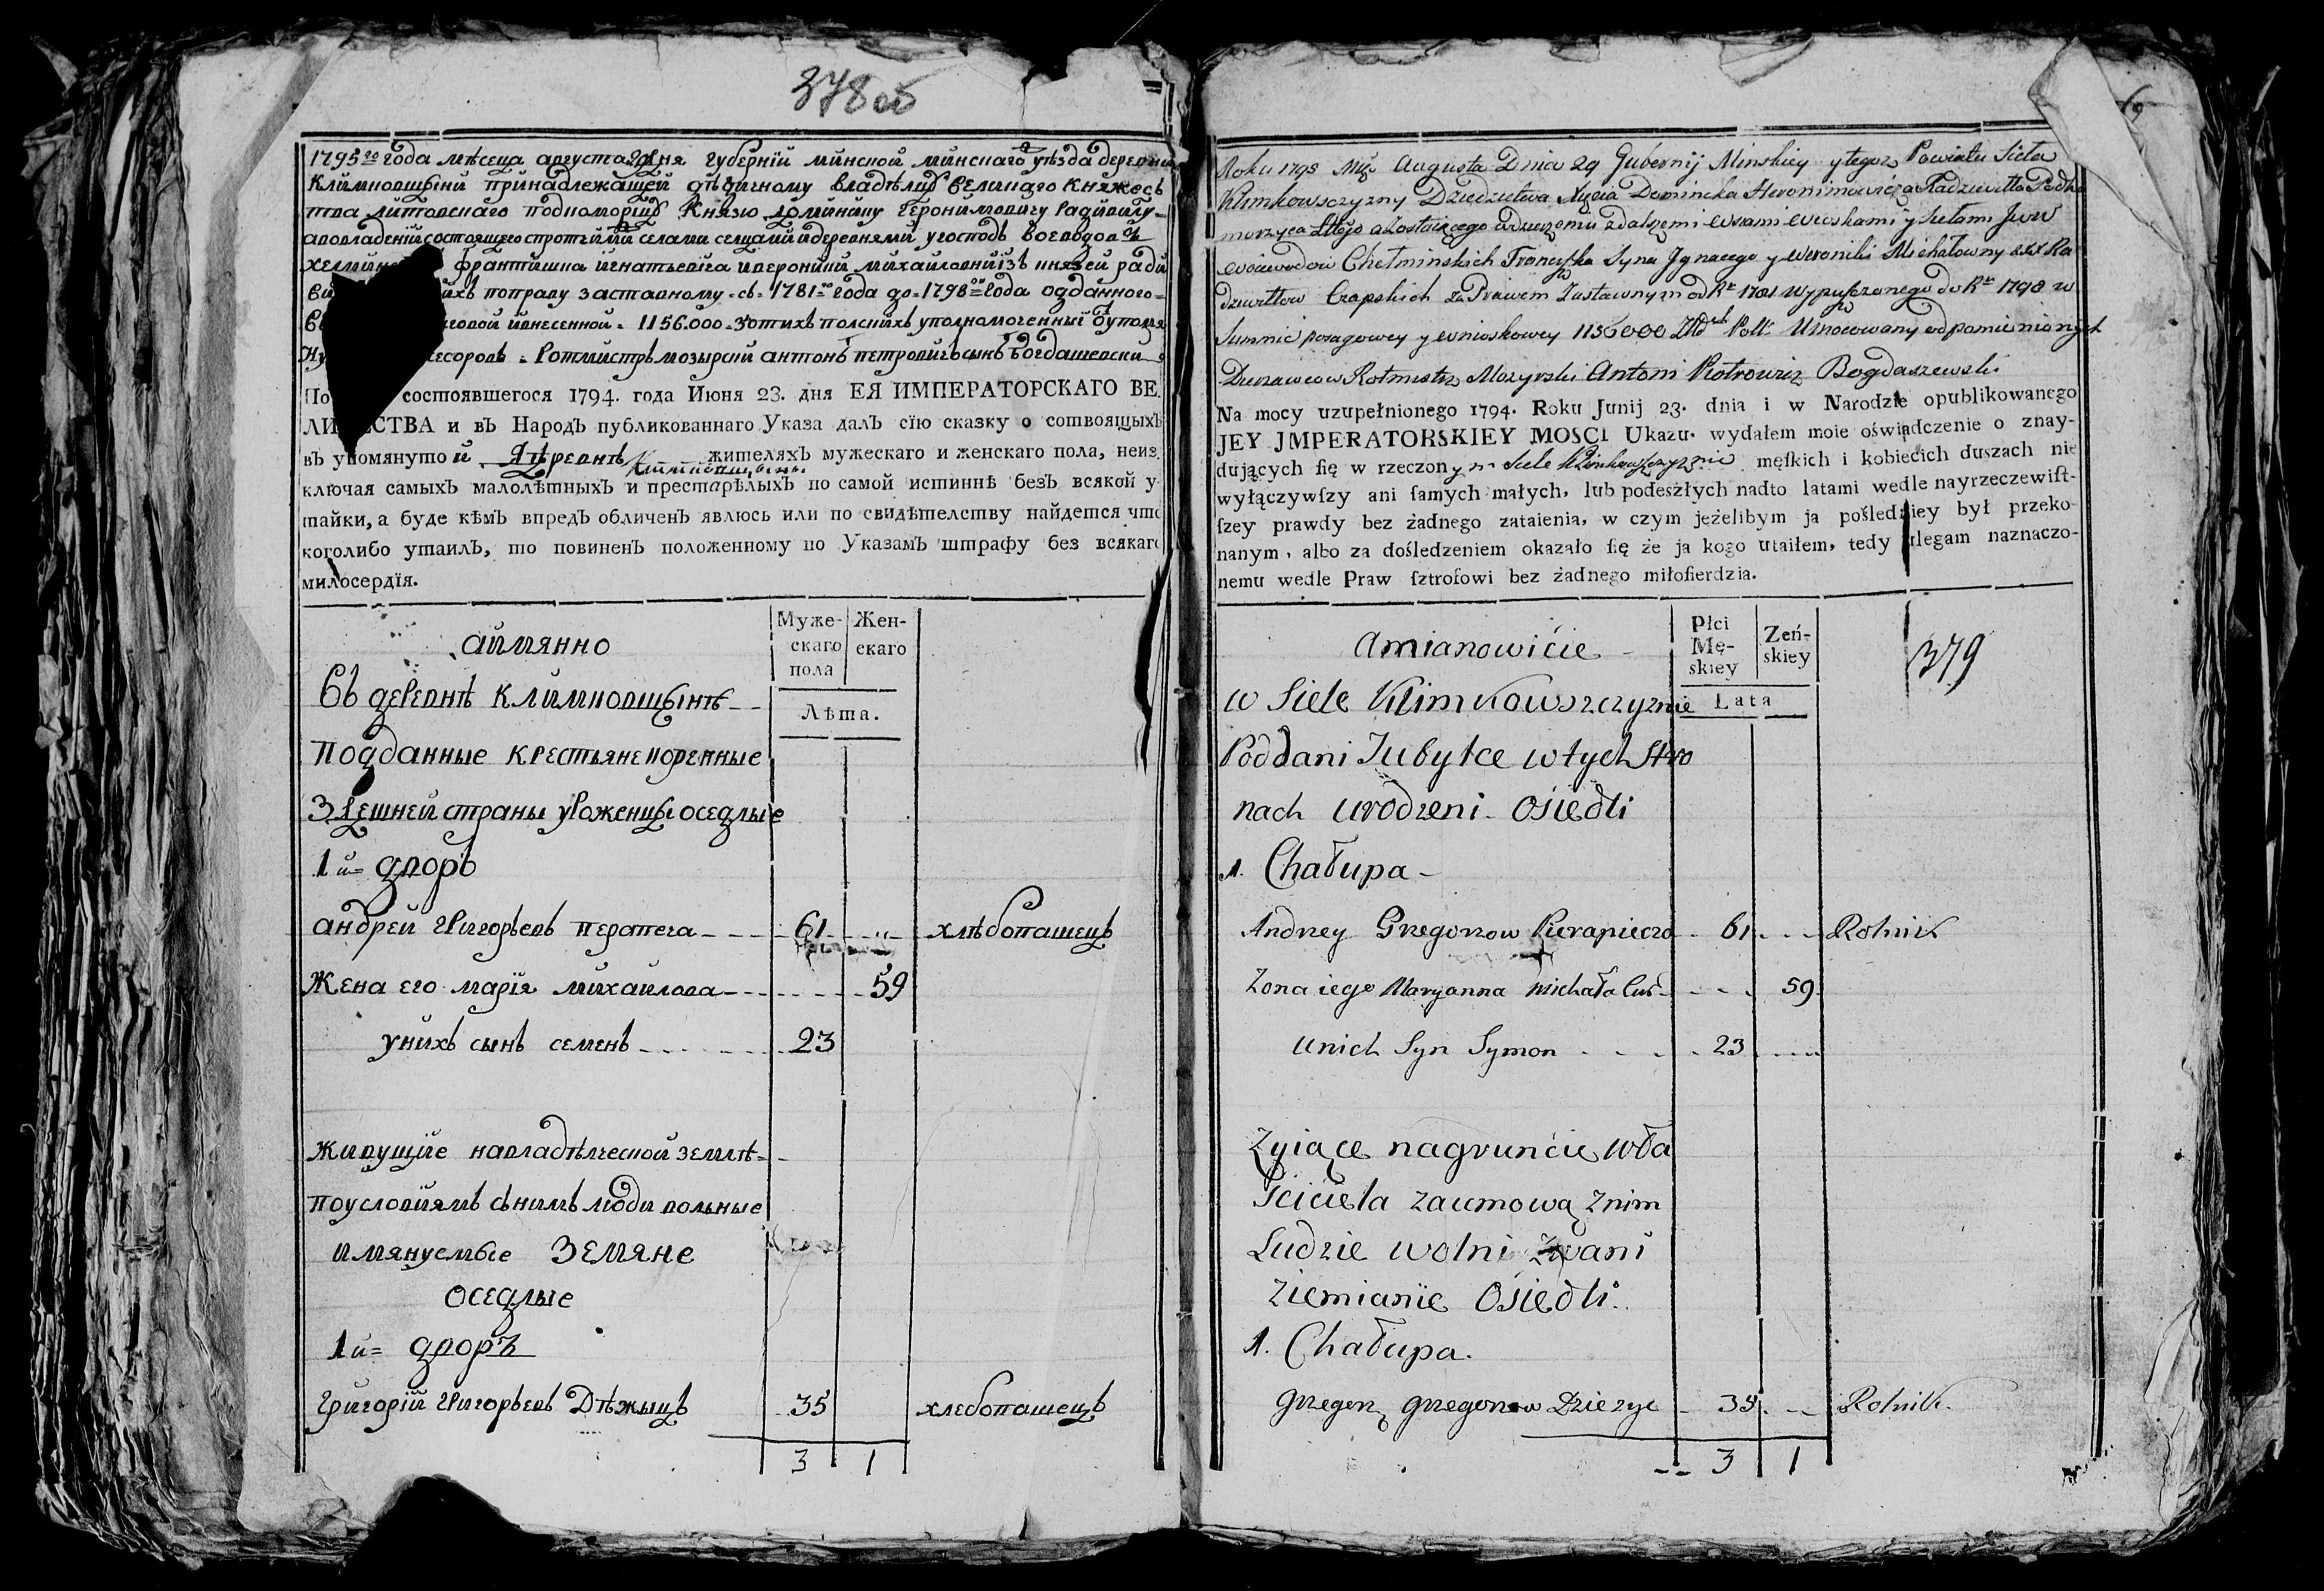 378 об
1795го года мѣсеца августа 29 дня губерніи минской минскаго уѣзда деревни
Климковщизни принадлежащей дѣдичному владѣлцу великаго княжес
тва литовскаго подкоморщу Князю доминику Геронимовичу Радивилу
авовладеніи состоящего спротчіими селами селцами и деревнями у господъ воеводовъ
хелмин франтишка игнатьевича и вероники михайловни изъ князей ради
ви ихъ поправу заставному съ 1781го года до 1798го года отданного
въ говой ивнесенной 1156.000 золотихъ полскихъ уполномоченный
сесоровъ Ротмистръ мозырскій антонъ петровичъ сынъ Богдашевски
По состоявшегося 1794. года Июня 23. дня ЕЯ ИМПЕРАТОРСКАГО ВЕ.
ЛИ ЕСТВА и въ Народъ публикованнаго Указа далъ сїю сказку о сотвоящыхъ
въ упомянутой Дѣревнѣ Климковщызны жителяхъ мужескаго и женскаго пола, неиз.
ключая самыхъ малолѣтныхъ и престарѣлыхъ по самой истиннѣ безъ всякой у
тайки, а буде кѣмъ впредъ обличенъ явлюсь или по свидѣтелству найдется что
коголибо утаилъ, то повиненъ положенному по Указамъ штрафу без всякаго
милосердїя.
аимянно
Муже- скаго пола
Жен- екаго
Въ деревнѣ климковщызнѣ
Лѣта.
Подданные крестьяне коренные
Здешней страны уроженцы оседлые
1й дворъ
андрей григорьевъ перапеча 61 хлѣбопашецъ
Жена его марія михайлова 59
у нихъ сынъ семенъ 23
живущіе навладѣлческой землѣ
поусловіямъ снимъ люди волные
имянуемые Земяне
оседлые
1й дворъ
Григорій григорьевъ Дѣжыцъ 35 хлебопашецъ
3 1
Roku 1795 Mca Augusta Dnia 29 Gubernij Minskiey y tegoż Powiatu Sieła
Klimkowszczyzny Dziedzictwa Xięcia Dominika Hieronimowicza Radziwiłła Podko
morzyca Litgo a zostaiącego w dzierżeniu z dalszemi wsiami wioskami y siełami Jww
woiewodow Chełminskich Franciszka Syna Jgnacego y Weroniki Michałowny xżt Ra
dziwiłłow Czapskich za Prawem Zastawnym od Rku 1781 wypuszczonego do Rku 1798 w
Summie posagowey y wnioskowey 1156000 Złłch Poll: Umocowany od pomienionych
Dzierzawcow Rotmistrz Mozyrski Antoni Piotrowicz Bogdaszewski
Na mocy uzupełnionego 1794. Roku Junij 23. dnia i w Narodzie opublikowanego
JEY JMPERATORSKIEY MOSCI Ukazu. wydałem moie oświadczenie o znay-
dujących ſię w rzeczonym Siele Klimkowszczyznie męſkich i kobiecich duszach nie
wyłączywſzy ani ſamych małych, lub podeszłych nadto latami wedle nayrzeczewiſt-
ſzey prawdy bez żadnego zataienia, w czym jeżelibym ja poślednziey był przeko-
nanym, albo za dośledzeniem okazało ſię że ja kogo utaiłem, tedy ulegam naznaczo-
nemu wedle Praw ſztroſowi bez żadnego miłoſierdzia.
Amianowićie
Płci Mę- skiey
Zeń- skiey
379
w Siele Klimkowszczyznie
Lata
Poddani Tubylce wtych Stro
nach Urodzeni Osiedli
1. Chałupa
Andrzey Grzegorzow Pierapiecza 61 Rolnik
Zona iego Maryanna Michałowa 59
Unich Syn Symon 23
Zyiące nagruncie wła
sciciela zaumową znim
Ludzie wolni Zwani
Ziemianie Osiedli
1. Chałupa.
Grzegorz Grzegorzow Dzieżyc 35 Rolnik.
3 1